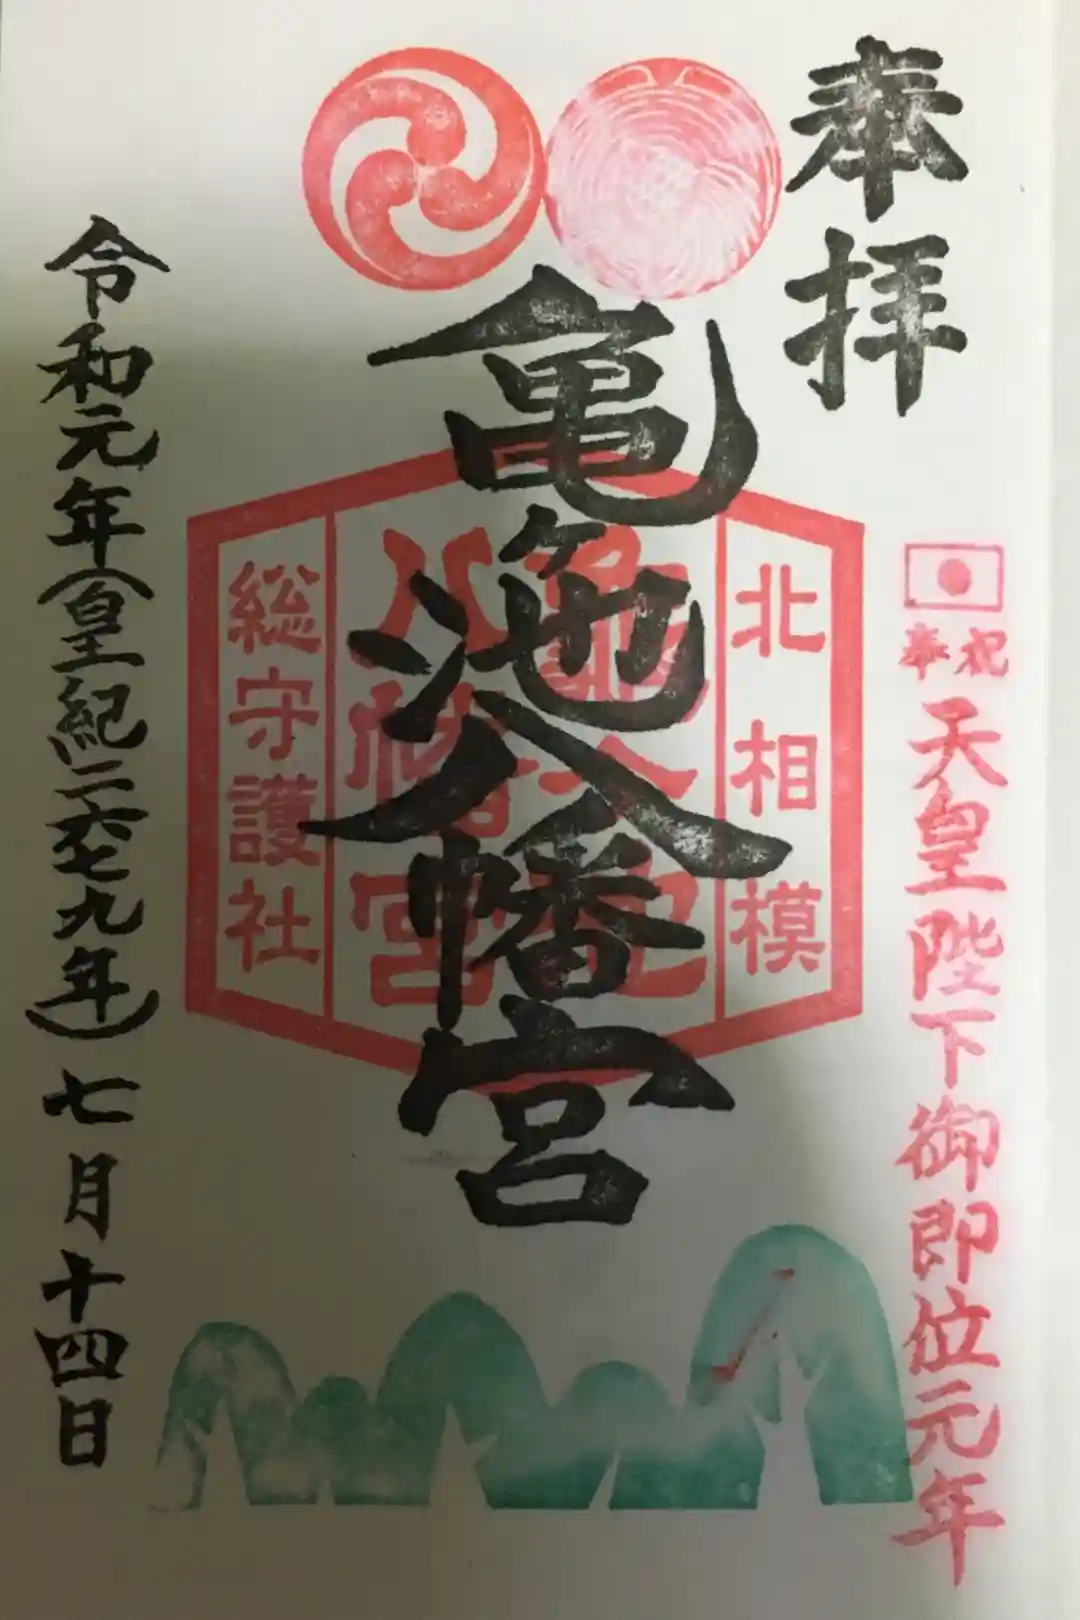 奉拝
奉祝
天皇陛下御即位元年
亀ヶ池八幡宮
北相模
八幡宮
総守護社
令和元年(皇紀二六七九年)七月十四日